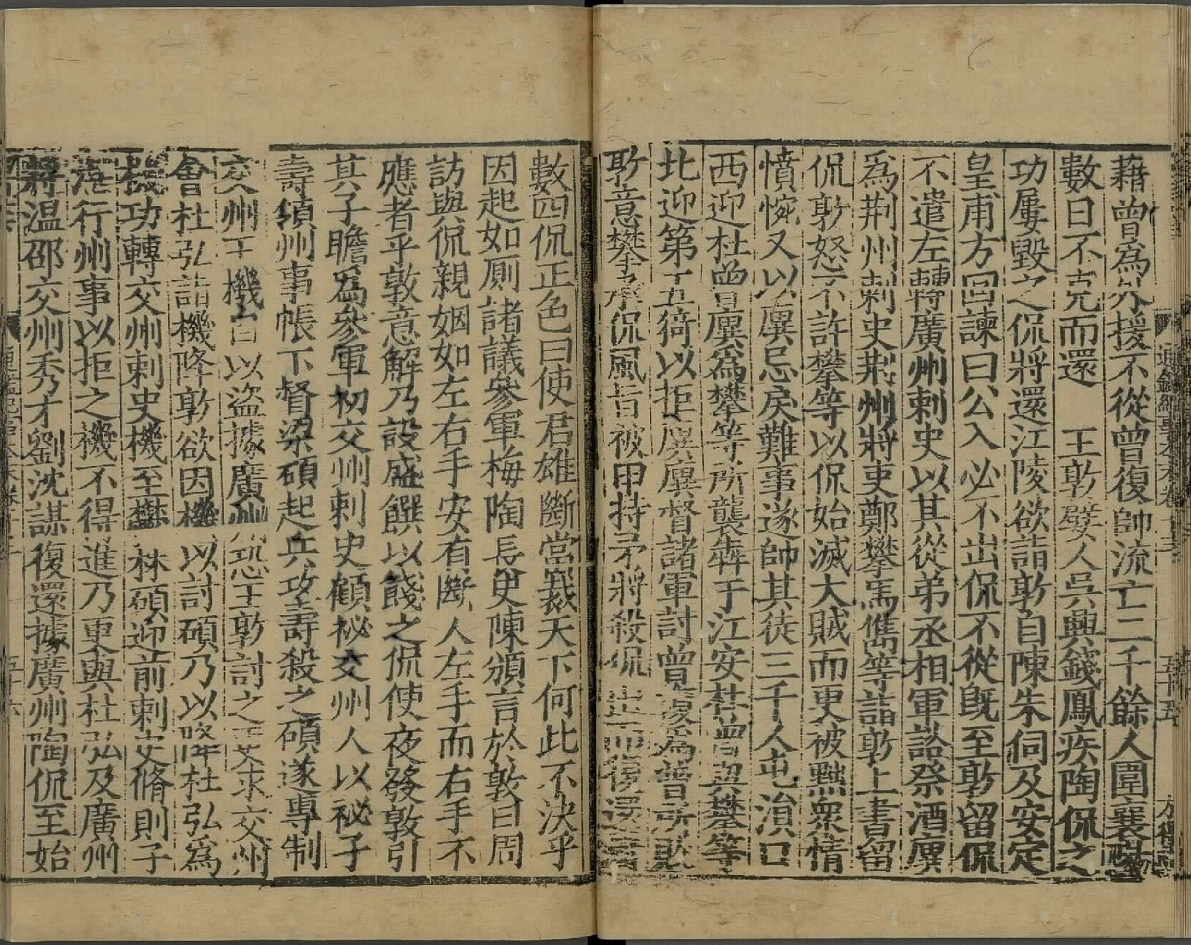 藉曾爲外援不從曾復帥流亡二千餘人圍襄陽
數日不克而還　王敦嬖人吳興錢鳳疾陶侃之
功屢毀之侃將還江陵欲詣敦自陳朱伺及安定
皇甫方回諫曰公入必不出侃不從旣至敦留侃
不遣左轉廣州刺史以其從弟丞相軍諮祭酒廙
爲荆州刺史荆州將吏鄭攀馬儁等詣敦上書留
侃敦怒不許攀等以侃始滅大賊而更被黜衆情
憤惋又以廙忌戾難事遂帥其徒三千人屯溳口
西迎杜曾廙爲攀等所襲犇于江安杜曾與攀等
北迎第五猗以拒廙廙督諸軍討曾復爲曾所敗
敦意攀承侃風旨被甲持矛將殺侃出而復還者
數四侃正色曰使君雄斷當裁天下何此不決乎
因起如厠諮議參軍梅陶長史陳頒言於敦曰周
訪與侃親姻如左右手安有斷人左手而右手不
應者乎敦意解乃設盛饌以餞之侃使夜發敦引
其子瞻爲參軍初交州刺史顧祕卒州人以祕子
壽領州事帳下督梁碩起兵攻壽殺之碩遂專制
交州王機自以盜據廣州恐王敦討之更求交州
會杜弘詣機降敦欲因機以討碩乃以降杜弘爲
機功轉交州刺史機至鬱林碩迎前刺史脩則子
湛行州事以拒之機不得進乃更與杜弘及廣州
將溫邵交州秀才劉沈謀復還據廣州陶侃至始